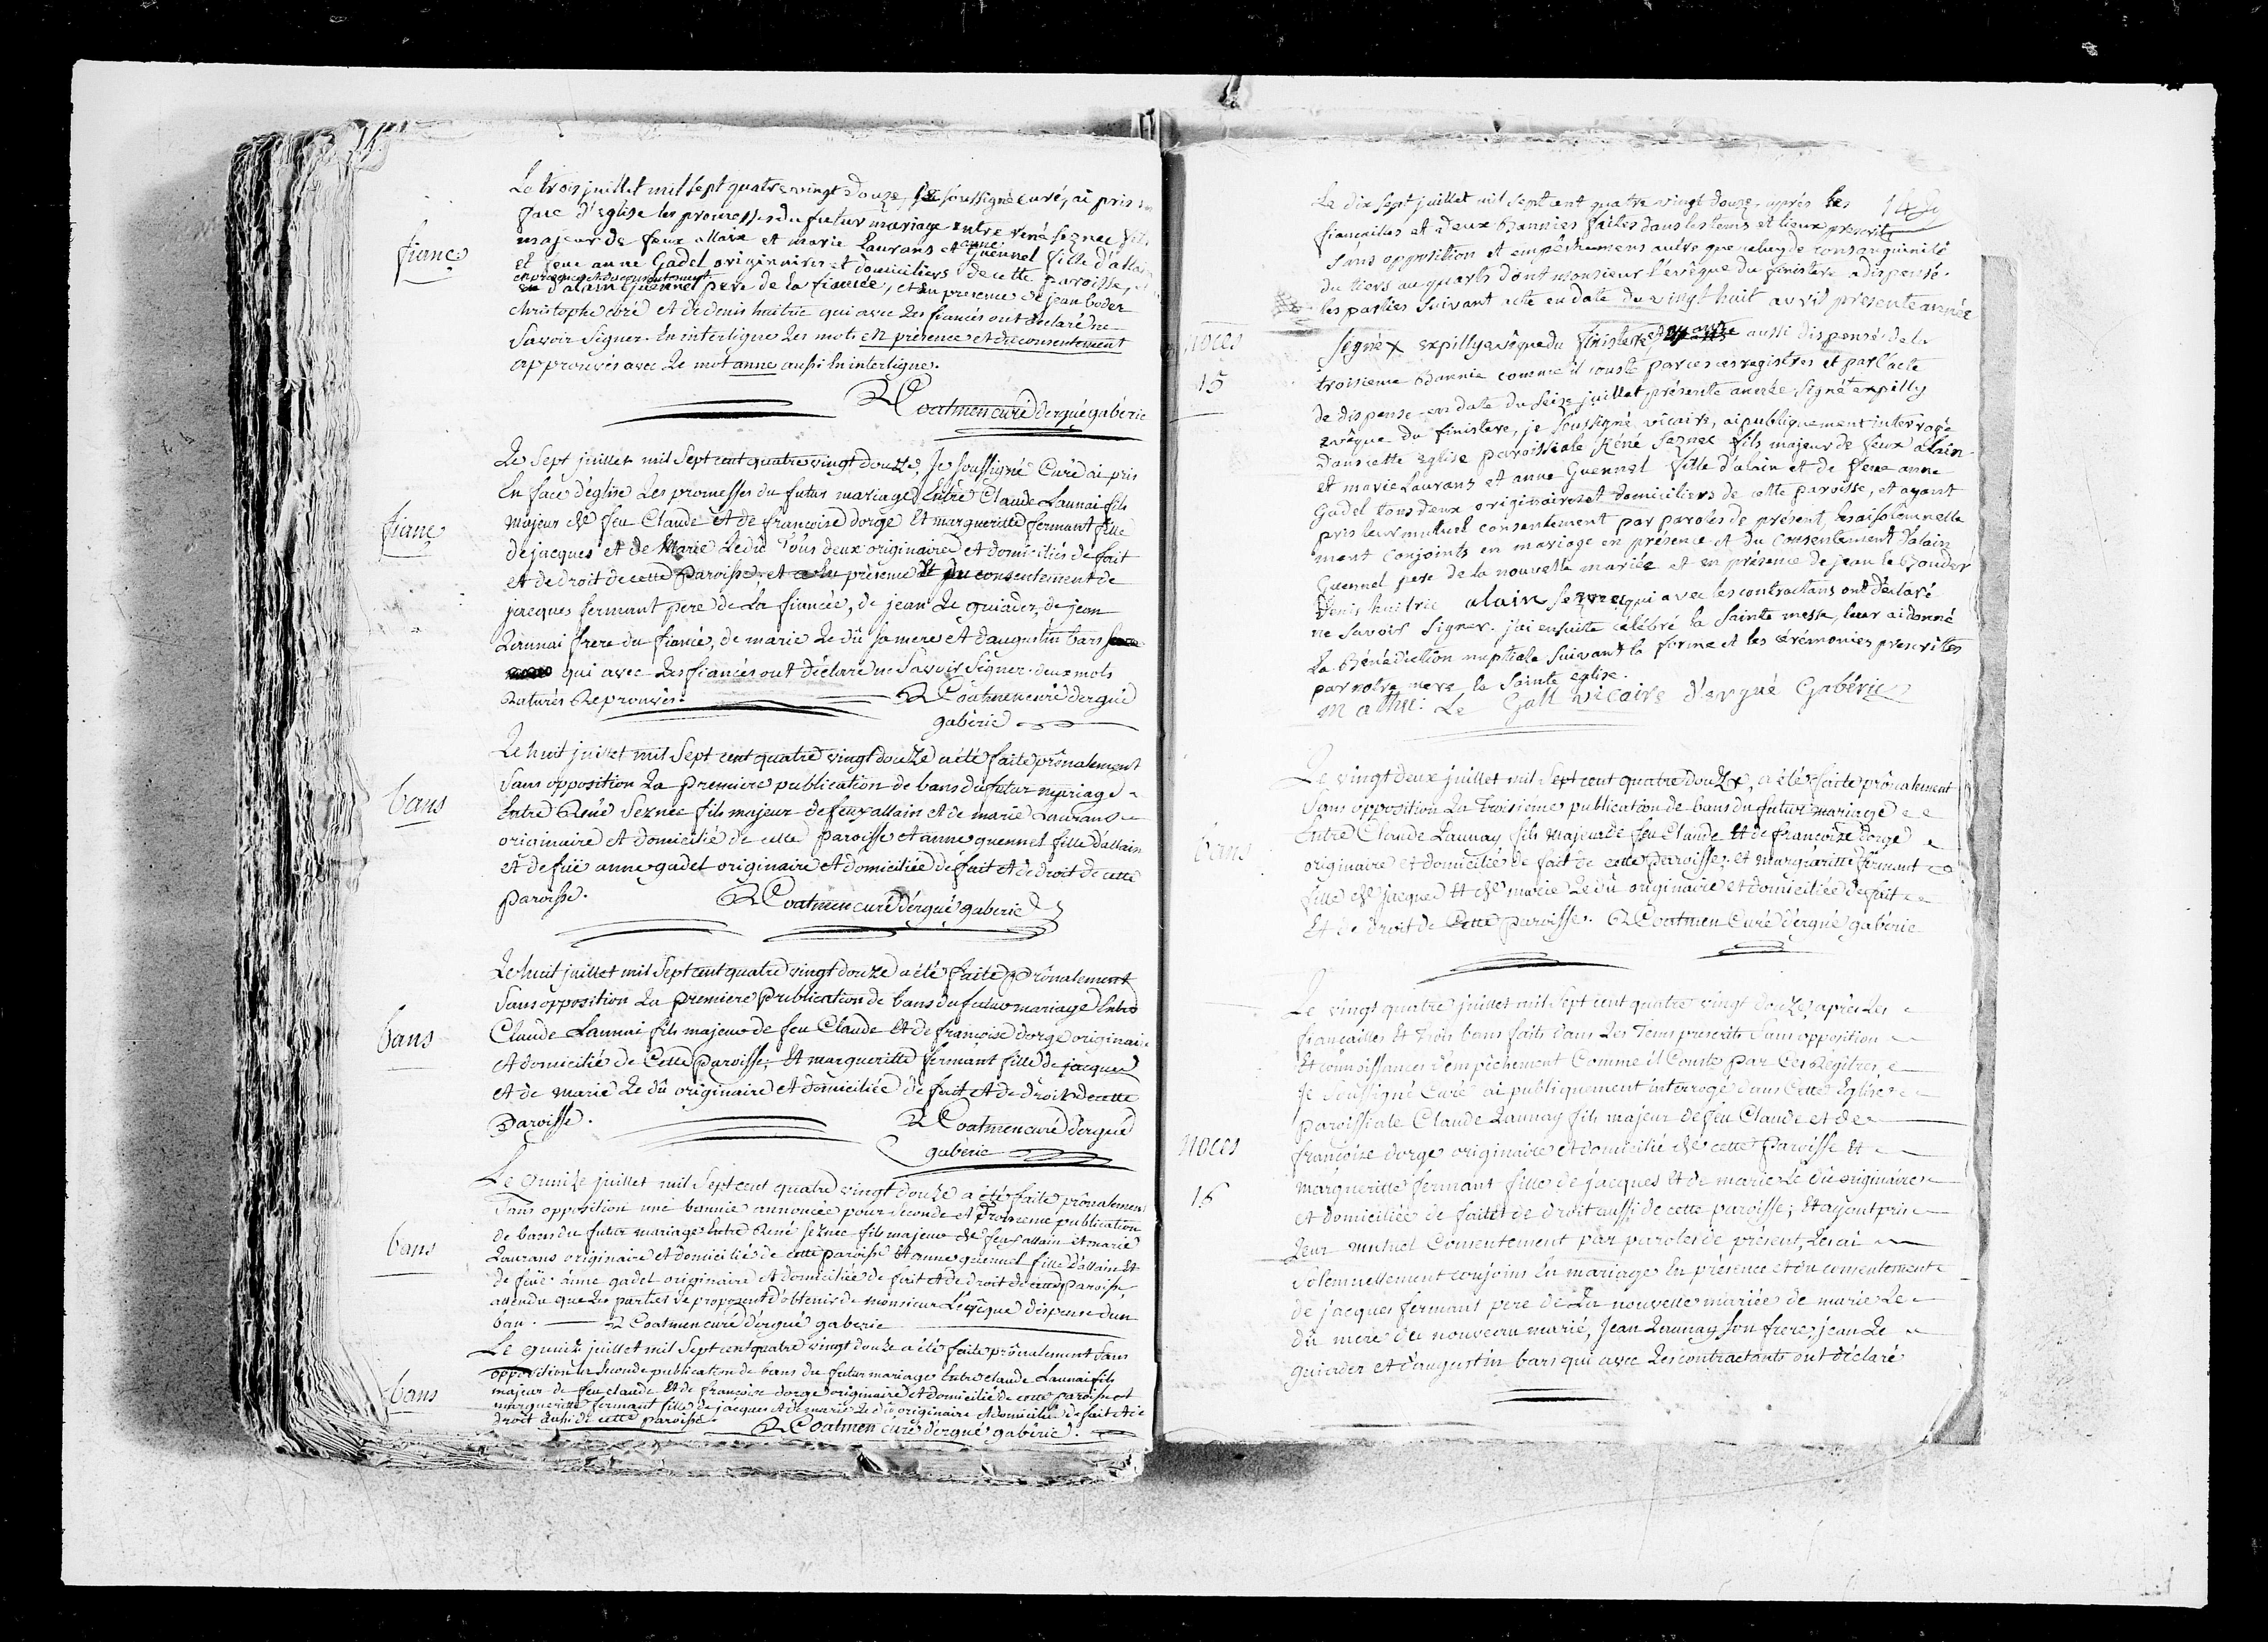 Le trois juillet mil sept quatre vingt douze, je soussigné curé, ai pris
face d'Eglise les promesses du futur mariage entre rené seznec fils
majeur de feux allain et marie Laurans et anne Guennel fille d'allain
et feue anne Gadel originaires et domiciliers de cette paroisse,
en presence et du consentement
d'alain Guennel pere de la fiancée, et en presence de jean boder
christophe coré et de denis huitric qui avec Les fiancés ont declaré ne
Savoir Signer. En interligne Les mots en présence et du consentement
approuvés avec Le mot anne aussi En interligne.
fianc.
R Coatmen curé d'ergué gabéric
Le Sept juillet mil Sept cent quatre vingt douze, Je soussigné Curé ai pris
En face d'église Les promesses du futur mariage Entre Claude Launai fils
Majeur de feu Claude et de francoise dorgé Et margueritte fermant fille
de jacques et de Marie Le dû Tous deux originaires et domiciliés de fait
et de droit de cette Paroisse, et en présence Et du consentement de
jacques fermant pere de La fiancée, de jean Le guiader, de jean
Launai frere du fiancé, de marie Le dû sa mere et d'augustin bars
qui avec Les fiancés ont déclaré ne Savoir Signer. deux mots
Raturés Reprouvés.
fianc
R Coatmen curé d'ergué
gabéric
Le huit juillet mil Sept cent quatre vingt douze a été faite prônalement
Sans opposition La premiere publication de bans du futur mariage
Entre René Seznec fils majeur de feux allain et de marie Laurans
originaire et domicilié de cette paroisse et anne guennel fille d'allain
et de füe anne gadel originaire et domiciliée de fait et de droit de cette
paroisse.
bans
R Coatmen curé d'ergué gaberic
Le huit juillet mil Sept cent quatre vingt douze a été faite Prônalement
Sans opposition La premiere Publication de bans du futur mariage Entre
Claude Launai fils majeur de feu Claude et de françoise dorgé originaire
et domicilié de Cette Paroisse, Et margueritte fermant fille de jacques
et de marie Le dû originaire et domiciliée de fait et de droit de cette
Paroisse.
bans
R Coatmen curé d'ergué
gabéric
Le quinze juillet mil Sept cent quatre vingt douze a été faite prônalement
Sans opposition une bannie annoncée pour seconde et troisieme publication
de bans du futur mariage Entre René seznec fils majeur de feux allain et marie
Laurans originaire et domicilié de cette paroisse et anne guennel fille d'allain et
de füe anne gadel originaire et domiciliée de fait et de droit de cette paroisse
attendu que Les parties se proposent d'obtenir de monsieur L'évêque dispense d'un
ban. R Coatmen curé d'ergué gaberic
bans
Le quinze juillet mil Sept cent quatre vingt douze a été faite prônalement Sans
opposition La seconde publication de bans du futur mariage Entre claude Launai fils
majeur de feu claude et de françoise dorgé originaire et domicilié de cette paroisse et
margueritte fermant fille de jacques et de marie Le dû originaire et domiciliée de fait et de
droit aussi de cette paroisse. R Coatmen curé d'ergué gabéric.
bans
Le dix sept juillet mil sept cent quatre vingt douze, après les
fiancailles et deux bannies faites dans les tems et lieux prescrits
sans opposition et empêchemens autre que celuy de consanguinité
du tiers au quart dont monsieur l'évêque du finistere a dispensé
les parties suivant acte en date du vingt huit avril presente année
signé expilly evêque du finistere et aussi dispensé de la
troisieme bannie comme il conste par ces registres et par l'acte
de dispense en date du seize juillet présente année signé expilly
evêque du finistere, je soussigné vicaire, ai publiquement interrogé
dans cette eglise paroissiale Réné seznec fils majeur de feux alain
et marie Laurans et anne Guennel fille d'alain et de feue anne
Gadel tous deux originaires et domiciliers de cette paroisse, et ayant
pris leur mutuel consentement par paroles de présent, les ai solemnelle
ment conjoints en mariage en présence et du consentement d'alain
Guennel pere de la nouvelle mariée et en présence de jean le bouder
Denis huitric alain seznec qui avec les contractans ont déclaré
ne savoir signer. j'ai ensuite célébré la sainte messe, leur ai donné
La Bénédiction nuptiale suivant la forme et les cérémonies prescrittes
par notre mere la sainte eglise.
noces
15
Le Gall vicaire d'ergué Gabéric
Le vingt deux juillet mil Sept cent quatre douze, a été faite prônalement
Sans opposition La Troisieme publication de bans du futur mariage
Entre Claude Launay fils majeur de feu Claude et de françoise dorgé
originaire et domicilié de fait de cette Paroisse, et margueritte fermant
fille de jacques et de marie Le dû originaire et domiciliée de fait
Et de droit de Cette paroisse. R Coatmen Curé d'ergué gabéric
bans
Le vingt quatre juillet mil Sept cent quatre vingt douze, après Les
fiançailles Et Trois bans faits dans Les Tems prescrits Sans opposition
Et connoissances d'empêchement Comme il Conste par Ces Régîtres,
Je Soussigné Curé ai publiquement interrogé dans Cette Eglise
paroissiale Claude Launay fils majeur de feu Claude et de
françoise dorgé originaire et domicilié de cette Paroisse Et
margueritte fermant fille de jacques Et de marie Le dû originaire
et domiciliée de fait et de droit aussi de cette paroisse; Et ayant pris
Leur mutuel Consentement par paroles de présent, Les ai
Solemnellement conjoins En mariage En présence et du consentement
de jacques fermant pere de La nouvelle mariée de marie Le
dû mere du nouveau marié, Jean Launay son frere, jean Le
guiader et d'augustin bars qui avec Les contractants ont déclaré
noces
16